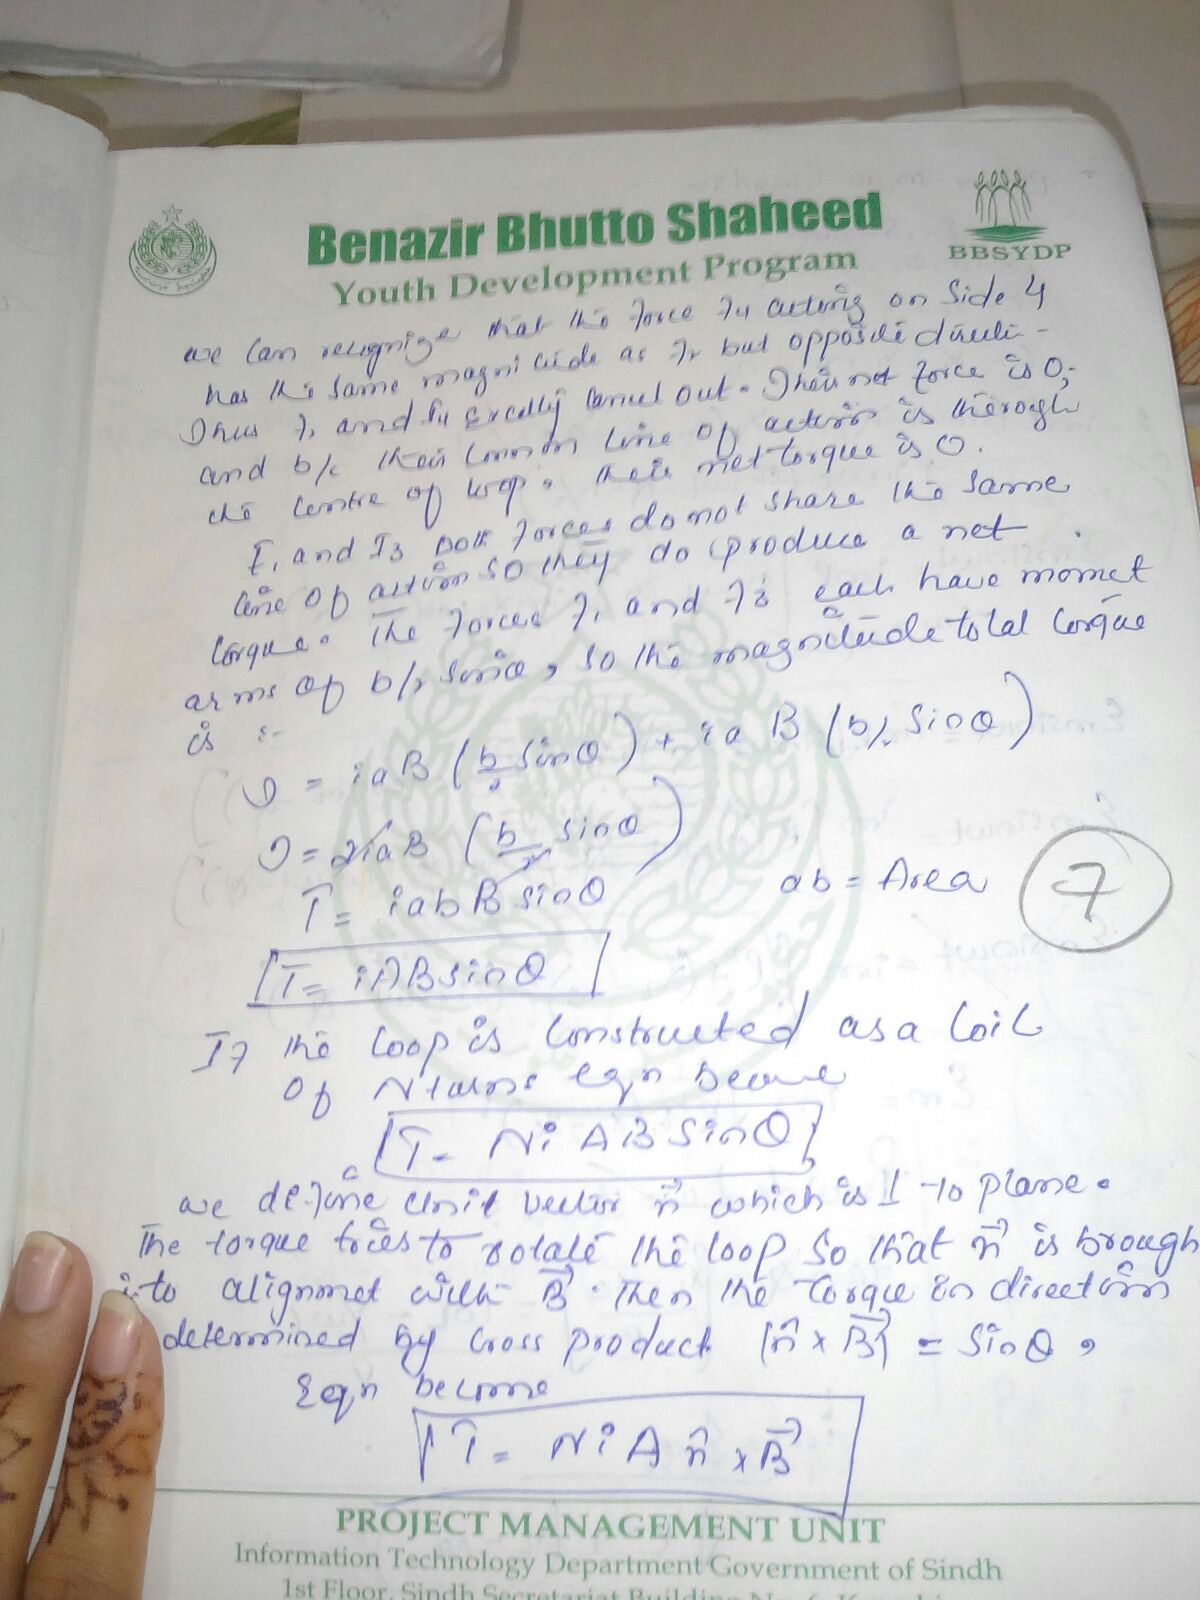 Benazir Bhutto Shaheed
Youth Development Program
BBSYDP
we can recognize that the force F4 acting on side 4
has the same magnitude as F2 but opposite directi-
Thus F, and F4 exactly cancel out. Their net force is 0;
and b/c their common line of action is through
the centre of loop. their net torque is 0.
F, and F3 both forces do not share the same
line of action so they do produce a net
torque. The forces F, and F3 each have momet
arms of b/2 sinθ, so the magnitude total torque
is :-
T = iaB (b/2 sinθ) + iaB (b/2 sinθ)
T = 2iaB (b/2 sinθ)
T = iabB sinθ
ab = Area
7
T = iABsinθ
If the loop is constructed as a coil
of N turns eqn become
T = NiABsinθ
we define unit vector n⃗ which is ⊥ to plane.
The torque tries to rotate the loop so that n⃗ is brough
into alignmet with B⃗. Then the torque in direction
determined by cross product |n̂ × B⃗| = sinθ,
Eqn become
T⃗ = NiA n̂ × B⃗
PROJECT MANAGEMENT UNIT
Information Technology Department Government of Sindh
1st Floor, Sindh Secretariat Building No. 6, Karachi